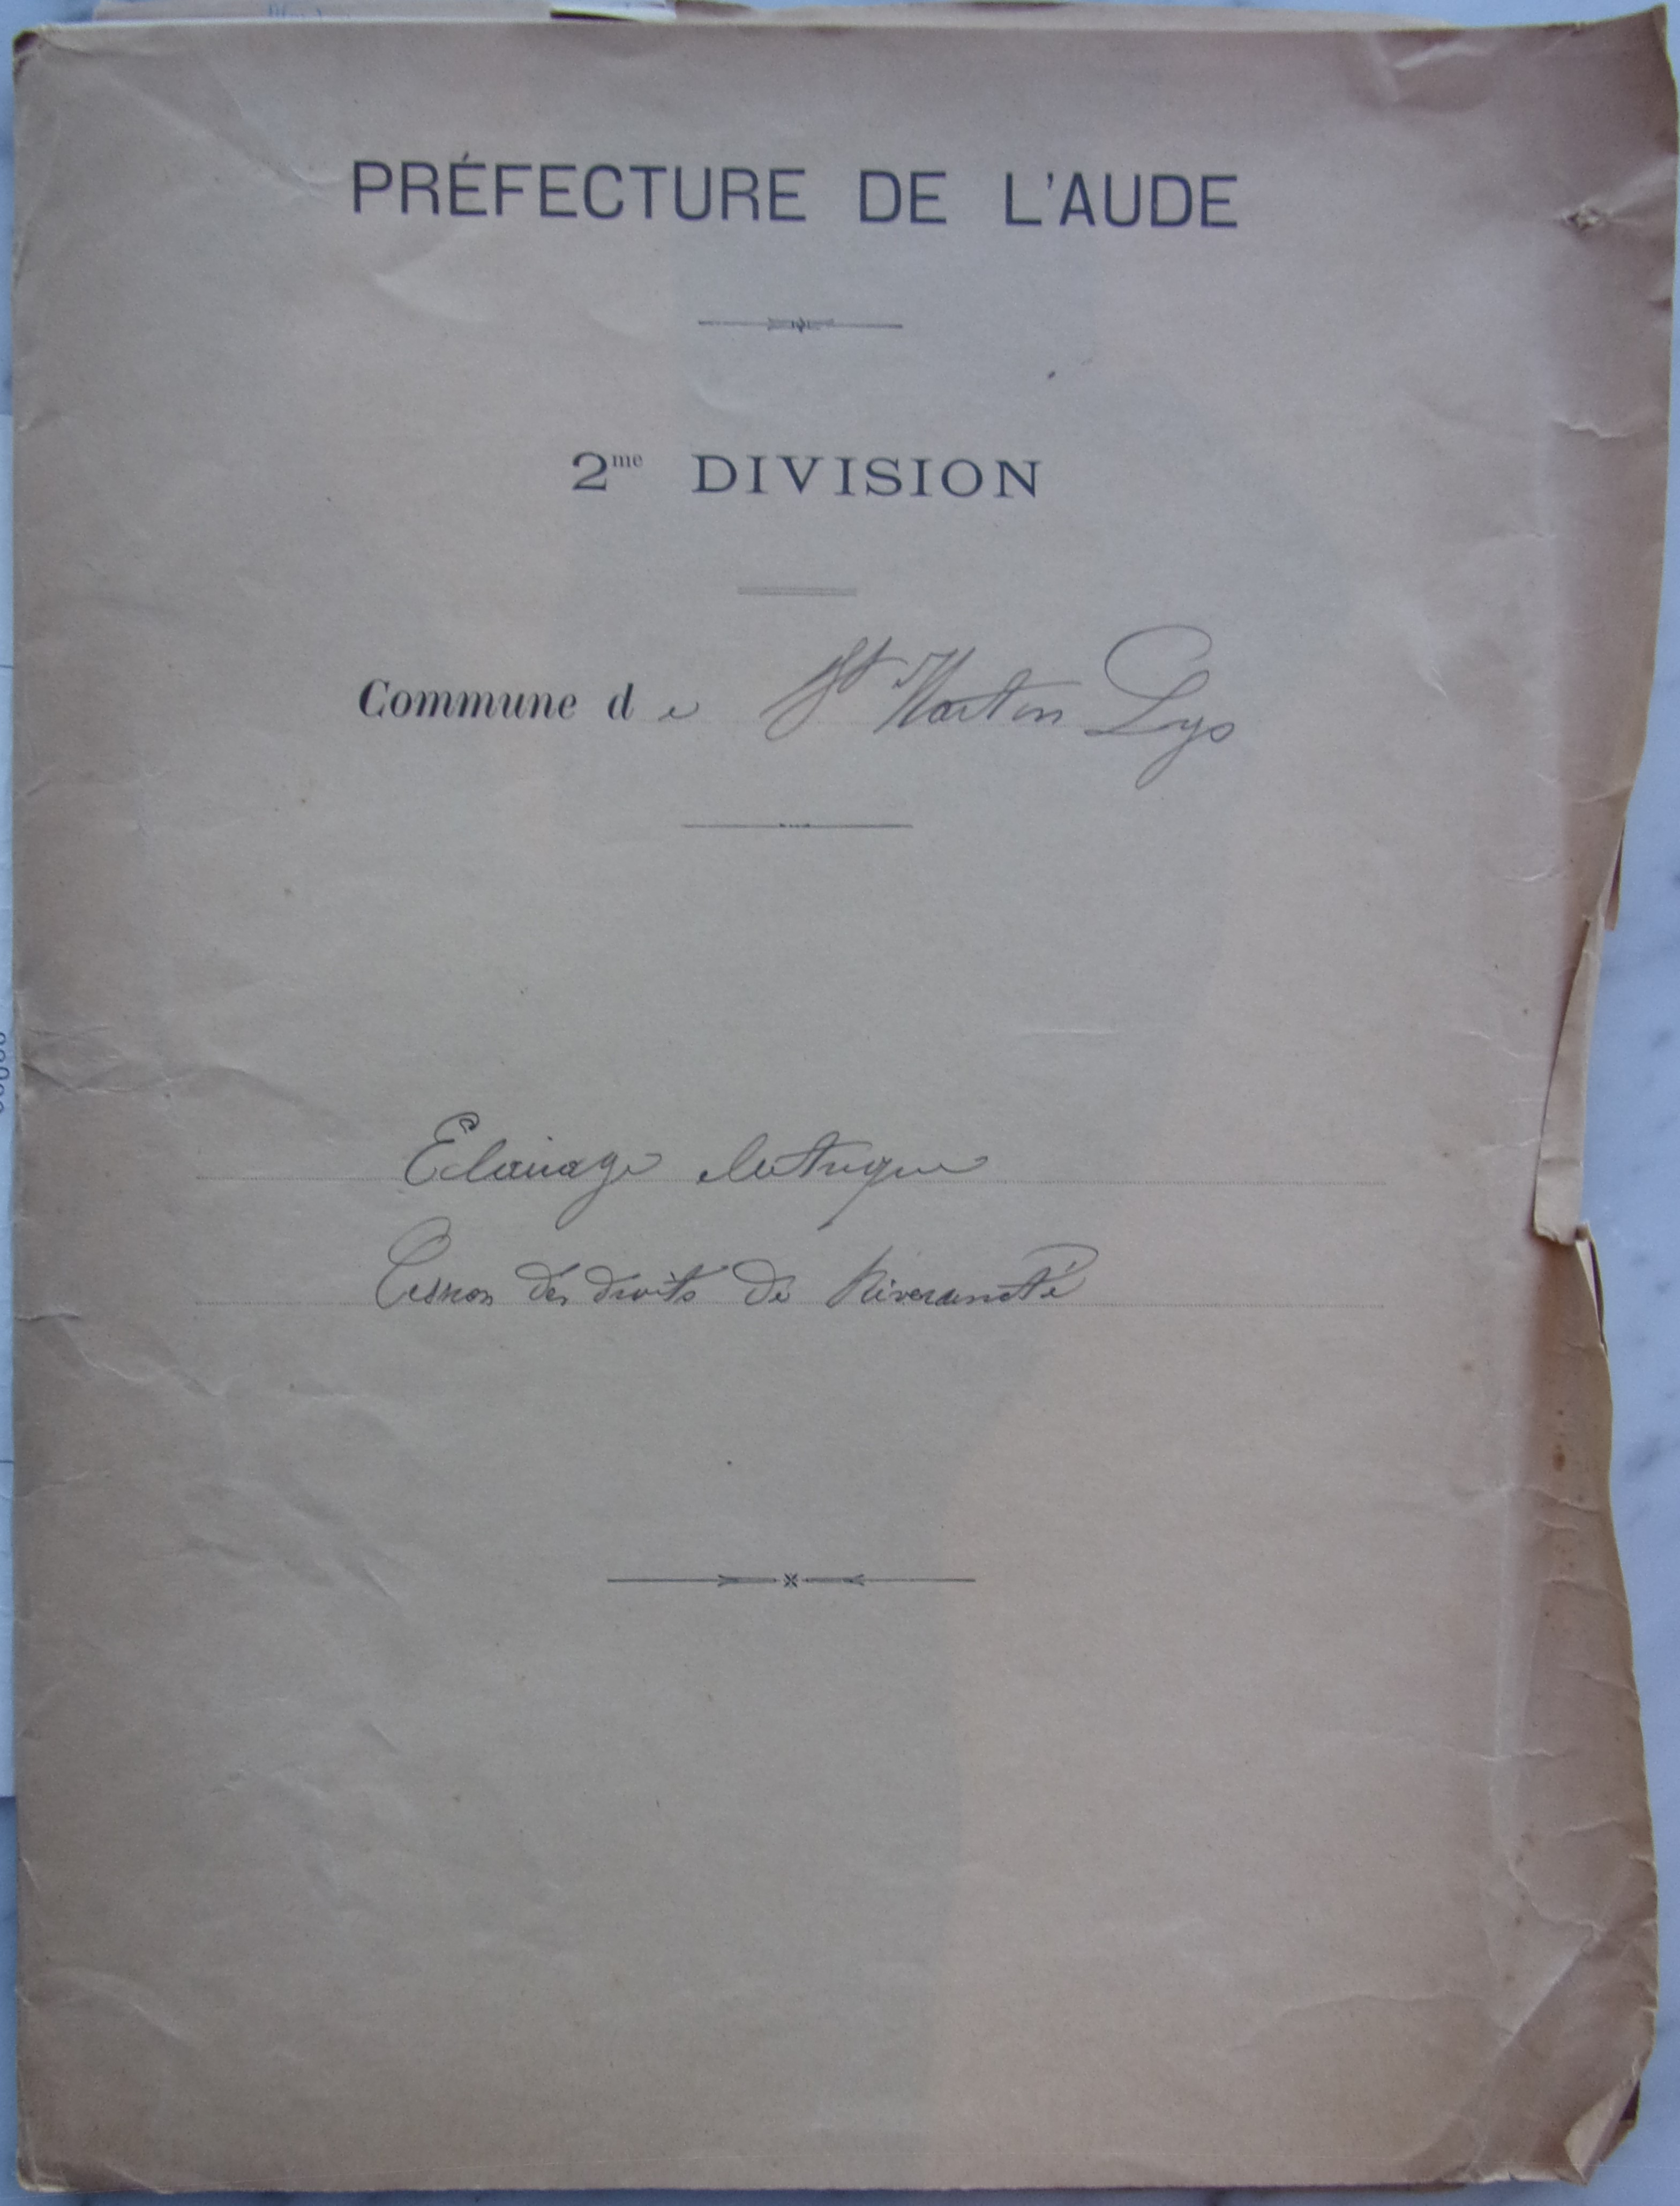 PRÉFECTURE DE L'AUDE
2me DIVISION
Commune de St Martin Lys
Eclairage electrique
Cession des droits de Riveraineté